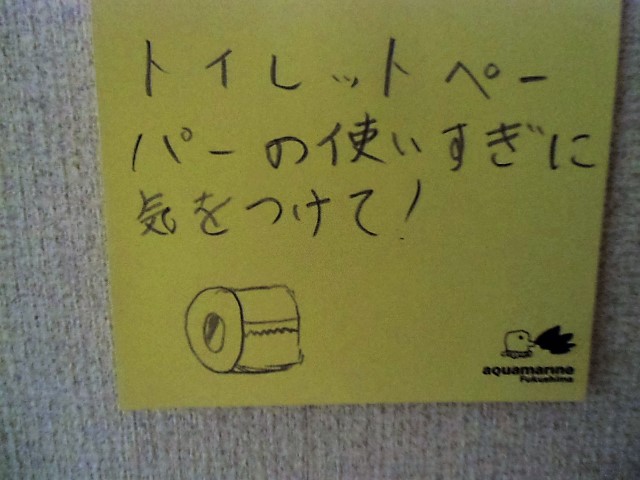 トイレットペー
パーの使いすぎに
気をつけて!
aquamarine
Fukushima